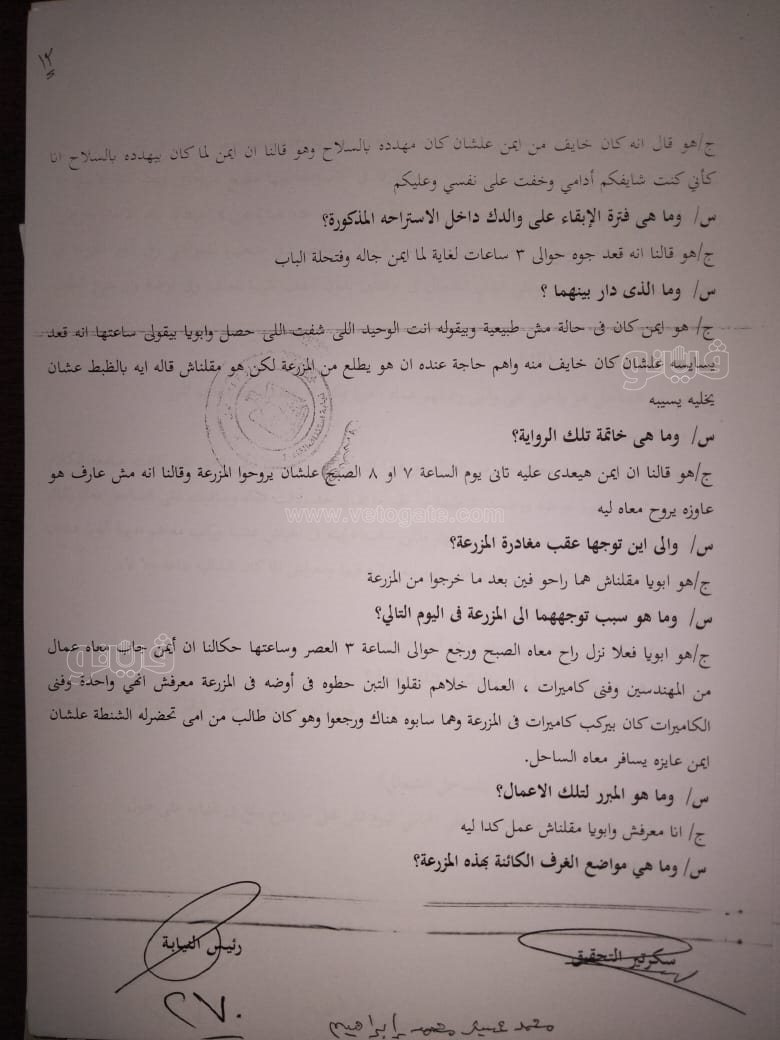 ١٢
ج/هو قال انه كان خايف من ايمن علشان كان مهدده بالسلاح وهو قالنا ان ايمن لما كان بيهدده بالسلاح انا
كأني كنت شايفكم أدامي وخفت على نفسي وعليكم
س/ وما هى فترة الإبقاء على والدك داخل الاستراحه المذكورة؟
ج/هو قالنا انه قعد جوه حوالى ٣ ساعات لغاية لما ايمن جاله وفتحلة الباب
س/ وما الذى دار بينهما ؟
ج/ هو ايمن كان فى حالة مش طبيعية وبيقوله انت الوحيد اللى شفت اللى حصل وابويا بيقولى ساعتها انه قعد
يسايسه علشان كان خايف منه واهم حاجة عنده ان هو يطلع من المزرعة لكن هو مقلناش قاله ايه بالظبط عشان
يخليه يسيبه
س/ وما هى خاتمة تلك الرواية؟
ج/هو قالنا ان ايمن هيعدى عليه تانى يوم الساعة ٧ او ٨ الصبح علشان يروحوا المزرعة وقالنا انه مش عارف هو
عاوزه يروح معاه ليه
www.vetogate.com
س/ والى اين توجها عقب مغادرة المزرعة؟
ج/هو ابويا مقلناش هما راحو فين بعد ما خرجوا من المزرعة
س/ وما هو سبب توجههما الى المزرعة فى اليوم التالي؟
ج/هو ابويا فعلا نزل راح معاه الصبح ورجع حوالى الساعة ٣ العصر وساعتها حكالنا ان أيمن جاب معاه عمال
من المهندسين وفنى كاميرات ، العمال خلاهم نقلوا التبن حطوه فى أوضه فى المزرعة معرفش انهي واحدة وفنى
الكاميرات كان بيركب كاميرات فى المزرعة وهما سابوه هناك ورجعوا وهو كان طالب من امى تحضرله الشنطة علشان
ايمن عايزه يسافر معاه الساحل.
س/ وما هو المبرر لتلك الاعمال؟
ج/ انا معرفش وابويا مقلناش عمل كدا ليه
س/ وما هي مواضع الغرف الكائنة بهذه المزرعة؟
سكرتير التحقيق
رئيس النيابة
محمد
ابراهيم
ڤيتو
ڤيتو